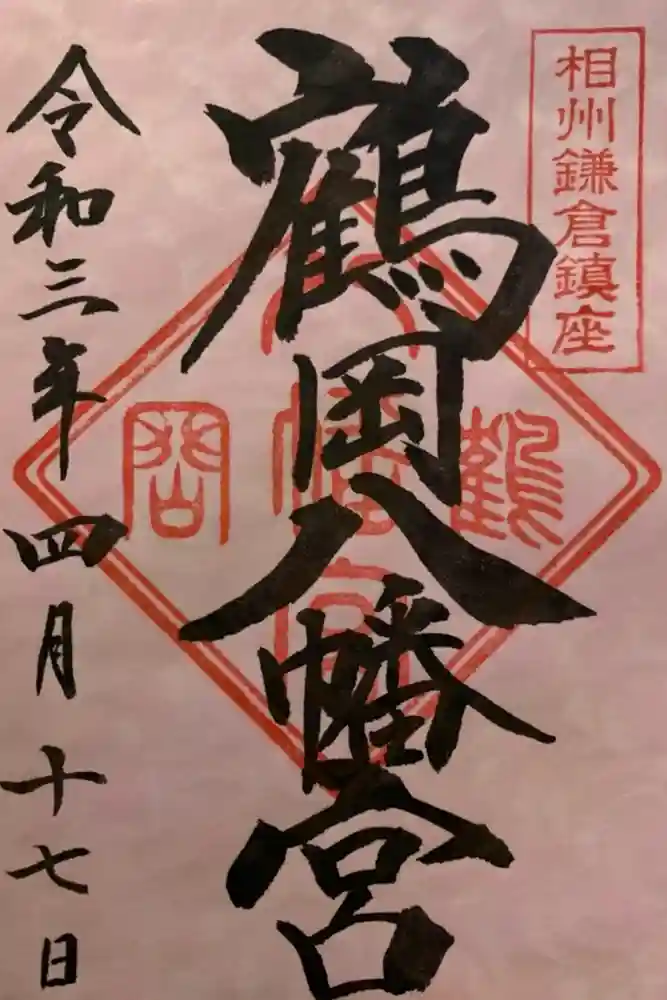 相州鎌倉鎮座
鶴岡八幡宮
鶴岡八幡宮
令和三年四月十七日